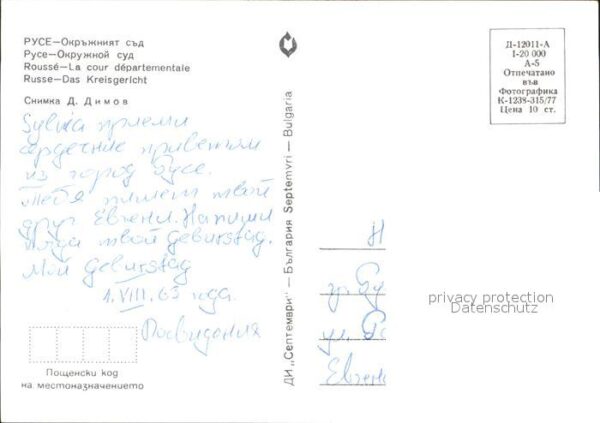 РУСЕ—Окръжният съд
Русе—Окружной суд
Roussé—La cour départementale
Russe—Das Kreisgericht
Снимка Д. Димов
Sylvia приеми
сердечние привети
из город Русе.
Тебя пишет твой
друг Евгени. Напиши
когда твой Geburstag.
Мой Geburstag
1.VIII.63 года.
Досвидания
Пощенски код
на местоназначението
ДИ „Септември" — България Septemvri — Bulgaria
Д-12011-А
I-20 000
А-5
Отпечатано
във
Фотографика
К-1238-315/77
Цена 10 ст.
Н
гр. Ру
ул.
Евгени
privacy protection
Datenschutz